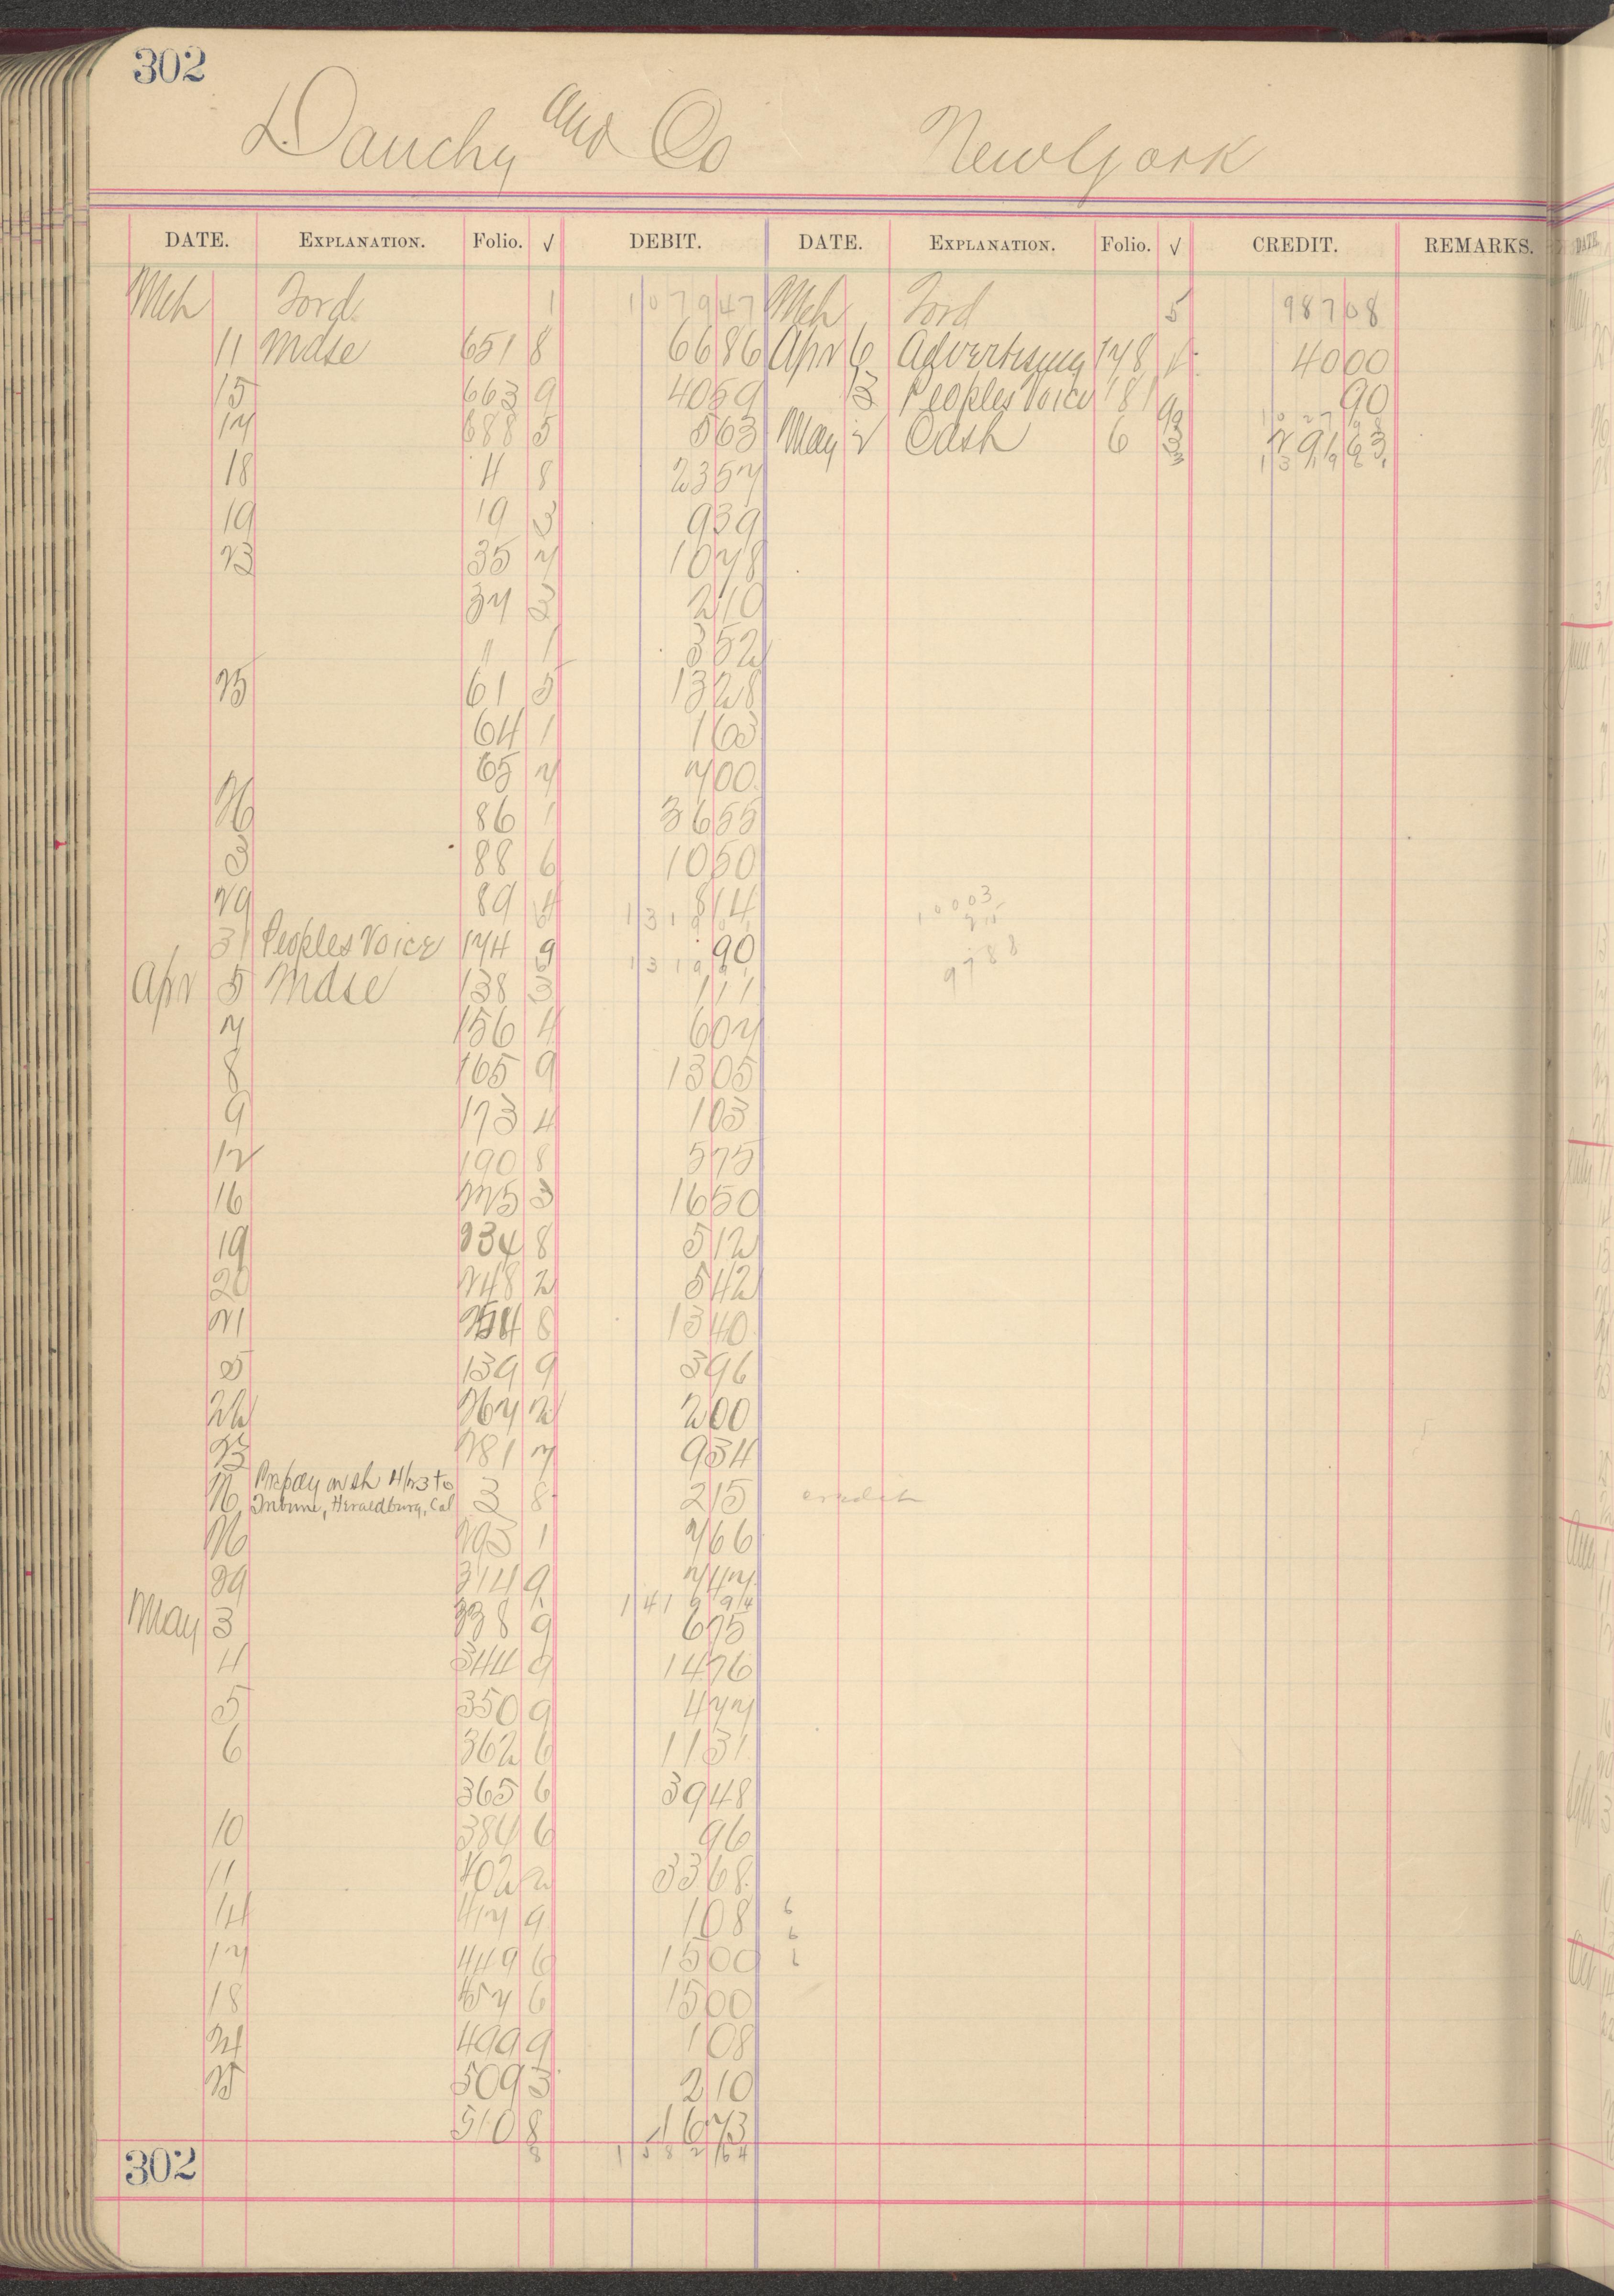 302
Dauchy and Co New York
DATE. EXPLANATION. Folio. √ DEBIT. DATE. EXPLANATION. Folio. √ CREDIT. REMARKS.
Mch Ford 1 1079 47 Mch Ford 5 987 08
11 Mdse 651 8 66 86 Apr 6 Advertising 148 40 00
15 663 9 40 59 13 Peoples Voice 181 90
17 688 5 5 63 May 2 Cash 6 3 291 63
18 4 8 23 57
19 19 3 9 39
23 35 7 10 78
37 3 2 10
11 1 3 52
25 61 5 13 28
64 1 1 63
65 7 7 00
26 86 1 36 55
3 88 6 10 50
29 89 4 8 14
10003
215
9788
31 Peoples Voice 174 9 90
1319
Apr 5 Mdse 138 3 1 11
7 156 4 6 07
8 165 9 13 05
9 173 4 1 03
12 190 8 5 75
16 225 3 16 50
19 234 8 5 12
20 248 2 5 42
21 254 8 13 40
5 139 9 3 96
22 267 2 2 00
23 281 7 9 34
26 Prepay on sh 4/23 to
Tribune, Heraldburg, Cal 3 8 2 15 credit
26 293 1 7 66
29 314 9 7 47
1419 94
May 3 338 9 6 75
4 344 9 14 76
5 350 9 4 77
6 362 6 11 31
365 6 39 48
10 384 6 96
11 402 2 33 68
14 417 9 1 08 6
6
17 449 6 15 00
18 457 6 15 00
24 499 9 1 08
25 509 3 2 10
510 8 16 73
302 8 1582 64